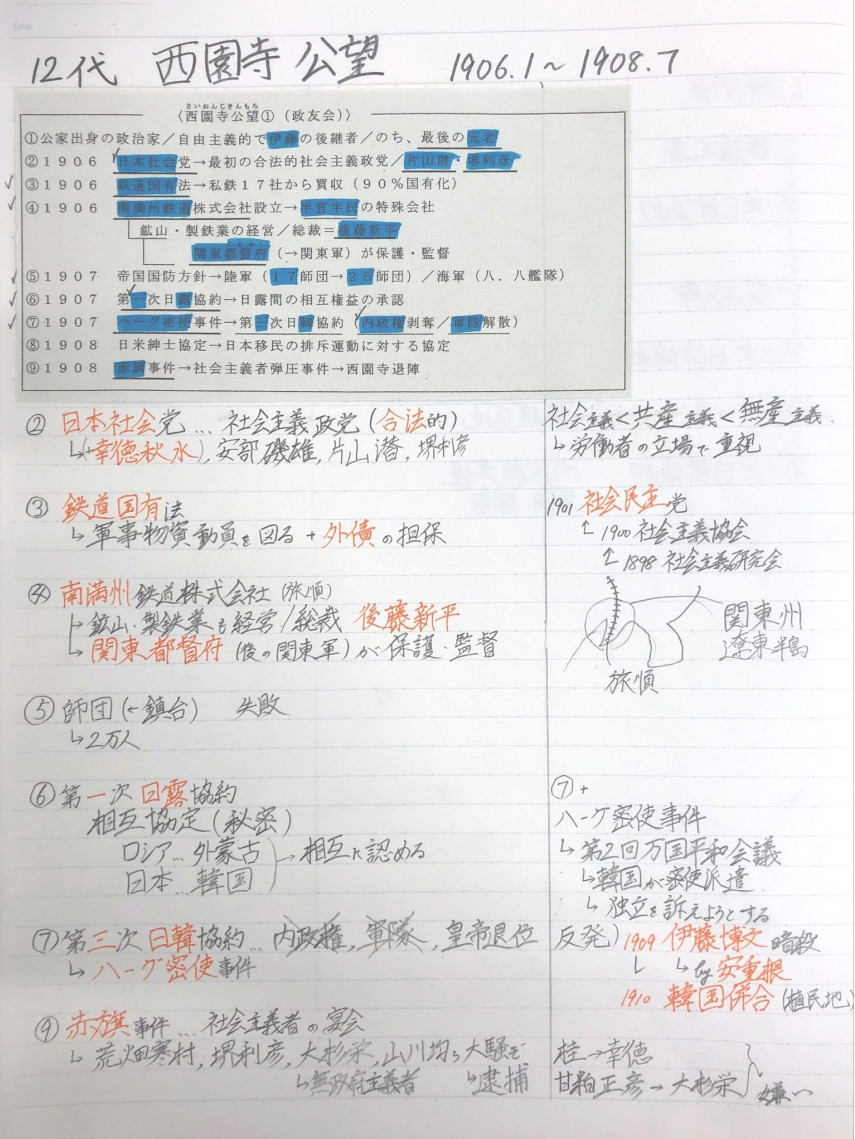 12代 西園寺 公望 1906.1～1908.7
さいおんじきんもち
〈西園寺公望①（政友会）〉
①公家出身の政治家／自由主義的で伊藤の後継者／のち、最後の元老
②1906 日本社会党→最初の合法的社会主義政党／片山潜・堺利彦
③1906 鉄道国有法→私鉄17社から買収（90％国有化）
④1906 南満州鉄道株式会社設立→半官半民の特殊会社
鉱山・製鉄業の経営／総裁＝後藤新平
関東都督府（→関東軍）が保護・監督
⑤1907 帝国国防方針→陸軍（17師団→25師団）／海軍（八．八艦隊）
⑥1907 第一次日露協約→日露間の相互権益の承認
⑦1907 ハーグ密使事件→第三次日韓協約（内政権剥奪／軍隊解散）
⑧1908 日米紳士協定→日本移民の排斥運動に対する協定
⑨1908 赤旗事件→社会主義者弾圧事件→西園寺退陣
② 日本社会党 … 社会主義政党（合法的）
↳(+幸徳秋水), 安部磯雄, 片山潜, 堺利彦
③ 鉄道国有法
↳ 軍事物資動員を図る + 外債の担保
④ 南満州鉄道株式会社（旅順）
↳ 鉱山・製鉄業も経営/総裁 後藤新平
↳ 関東都督府（後の関東軍）が保護・監督
⑤ 師団（←鎮台） 失敗
↳2万人
⑥ 第一次日露協約
相互協定（秘密）
ロシア…外蒙古
日本…韓国
→相互に認める
⑦ 第三次日韓協約… 内政権, 軍隊, 皇帝退位
↳ ハーグ密使事件
⑨ 赤旗事件 … 社会主義者の宴会
↳ 荒畑寒村, 堺利彦, 大杉栄, 山川均ら大騒ぎ
↳無政府主義者 ↳逮捕
社会主義＜共産主義＜無産主義
↳労働者の立場で重視
1901 社会民主党
↑1900 社会主義協会
↑1898 社会主義研究会
関東州
遼東半島
旅順
⑦+
ハーグ密使事件
↳第2回万国平和会議
↳韓国が密使派遣
↳独立を訴えようとする
反発）1909 伊藤博文暗殺
↳ ↳by 安重根
1910 韓国併合（植民地）
桂→幸徳
甘粕正彦→大杉栄
嫌い